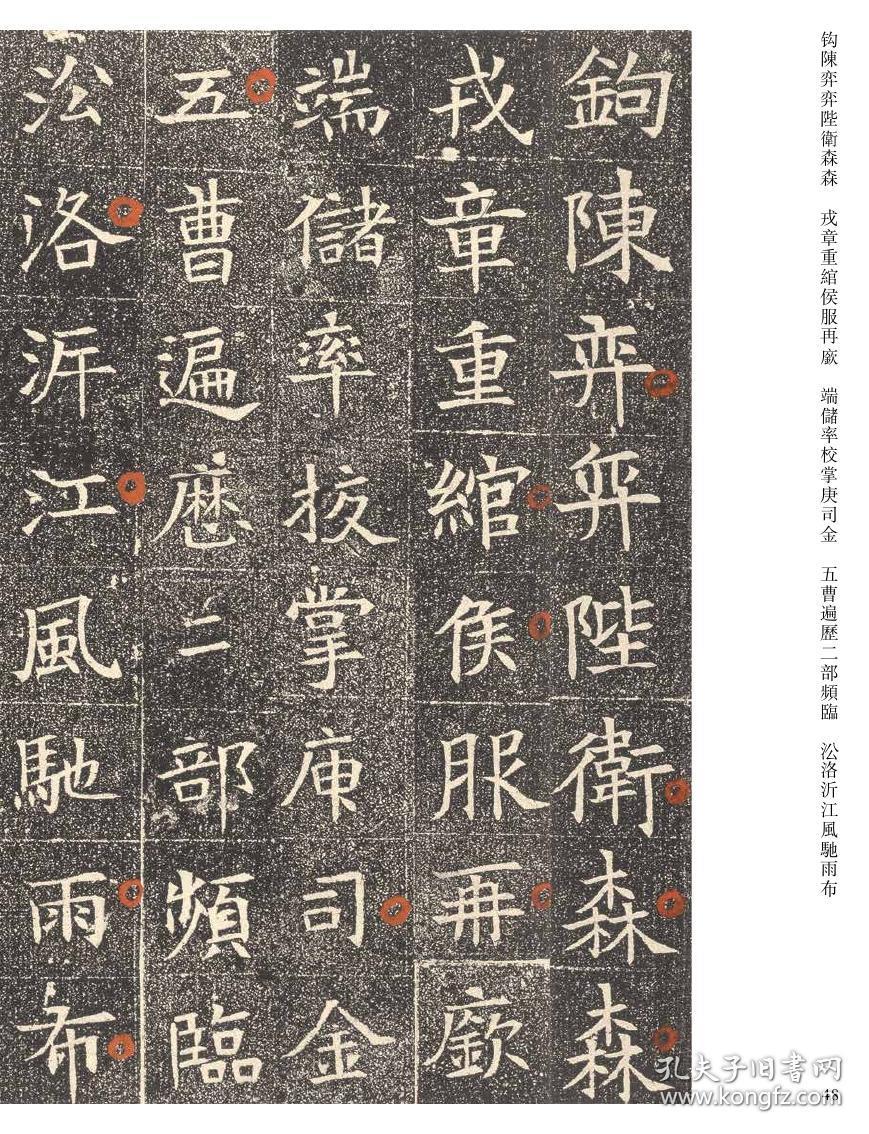 鉤陳弈弈陛衛森森
戎章重綰侯服再廞
端儲率校掌庚司金
五曹遍歷二部頻臨
洛沂江風馳雨布
钩陳弈弈陛衛森森 戎章重綰侯服再廞 端儲率校掌庚司金 五曹遍歷二部頻臨 㳂洛沂江風馳雨布
48
孔夫子旧书网
www.kongfz.com